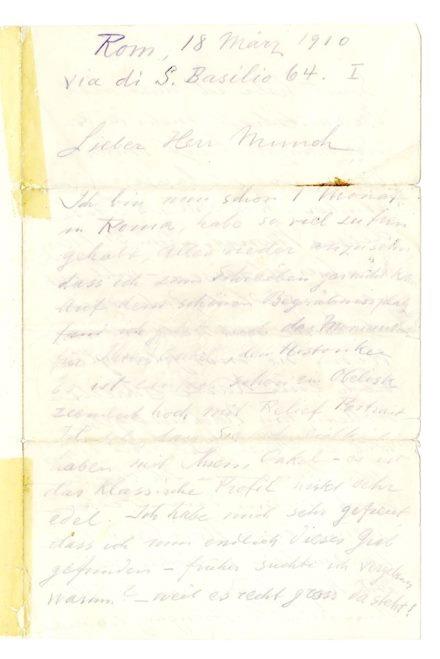 Rom, 18 März 1910
via di S. Basilio 64. I
Lieber Herr Munch
Ich bin nun schon 1 Monat
in Roma, habe so viel zu thun
gehabt, Alles wieder anzusehen
dass ich zum Schreiben gar nicht
Auf dem schönen Begräbnissplatz
das Monument
den Historiker
Es ist schon ein Obelisk
ziemlich hoch mit Relief Portrait
dass Sie
haben mit Ihrem Onkel - es ist
das klassische Profil sehr
edel. Ich habe mich sehr gefreut,
dass ich nun endlich dieses Grab
gefunden - früher suchte ich vergebens
warum? - weil es recht gross da steht!